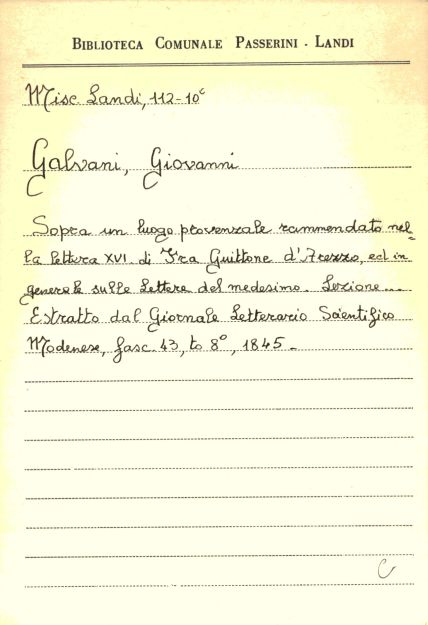 BIBLIOTECA COMUNALE PASSERINI - LANDI
Misc. Landi, 112-10c
Galvani, Giovanni
Sopra un luogo provenzale rammendato nel=
la lettera XVI di Fra Guittone d'Arezzo, ed in
generale sulle lettere del medesimo. Lezione...
Estratto dal Giornale Letterario Scientifico
Modenese, fasc. 43, to 8°, 1845 -
C